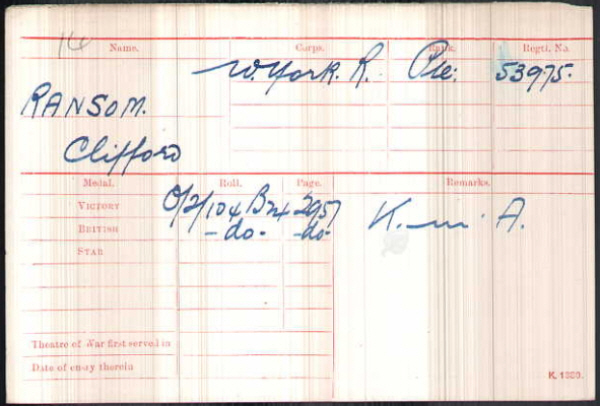 14 Name. Corps. Rank. Regtl. No.
W. York. R. Pte. 53975.
RANSOM.
Clifford
Medal. Roll. Page. Remarks.
VICTORY O/2/104 B24 2957 K. in A.
BRITISH -do- -do-
STAR
Theatre of War first served in
Date of entry therein
K. 1380.